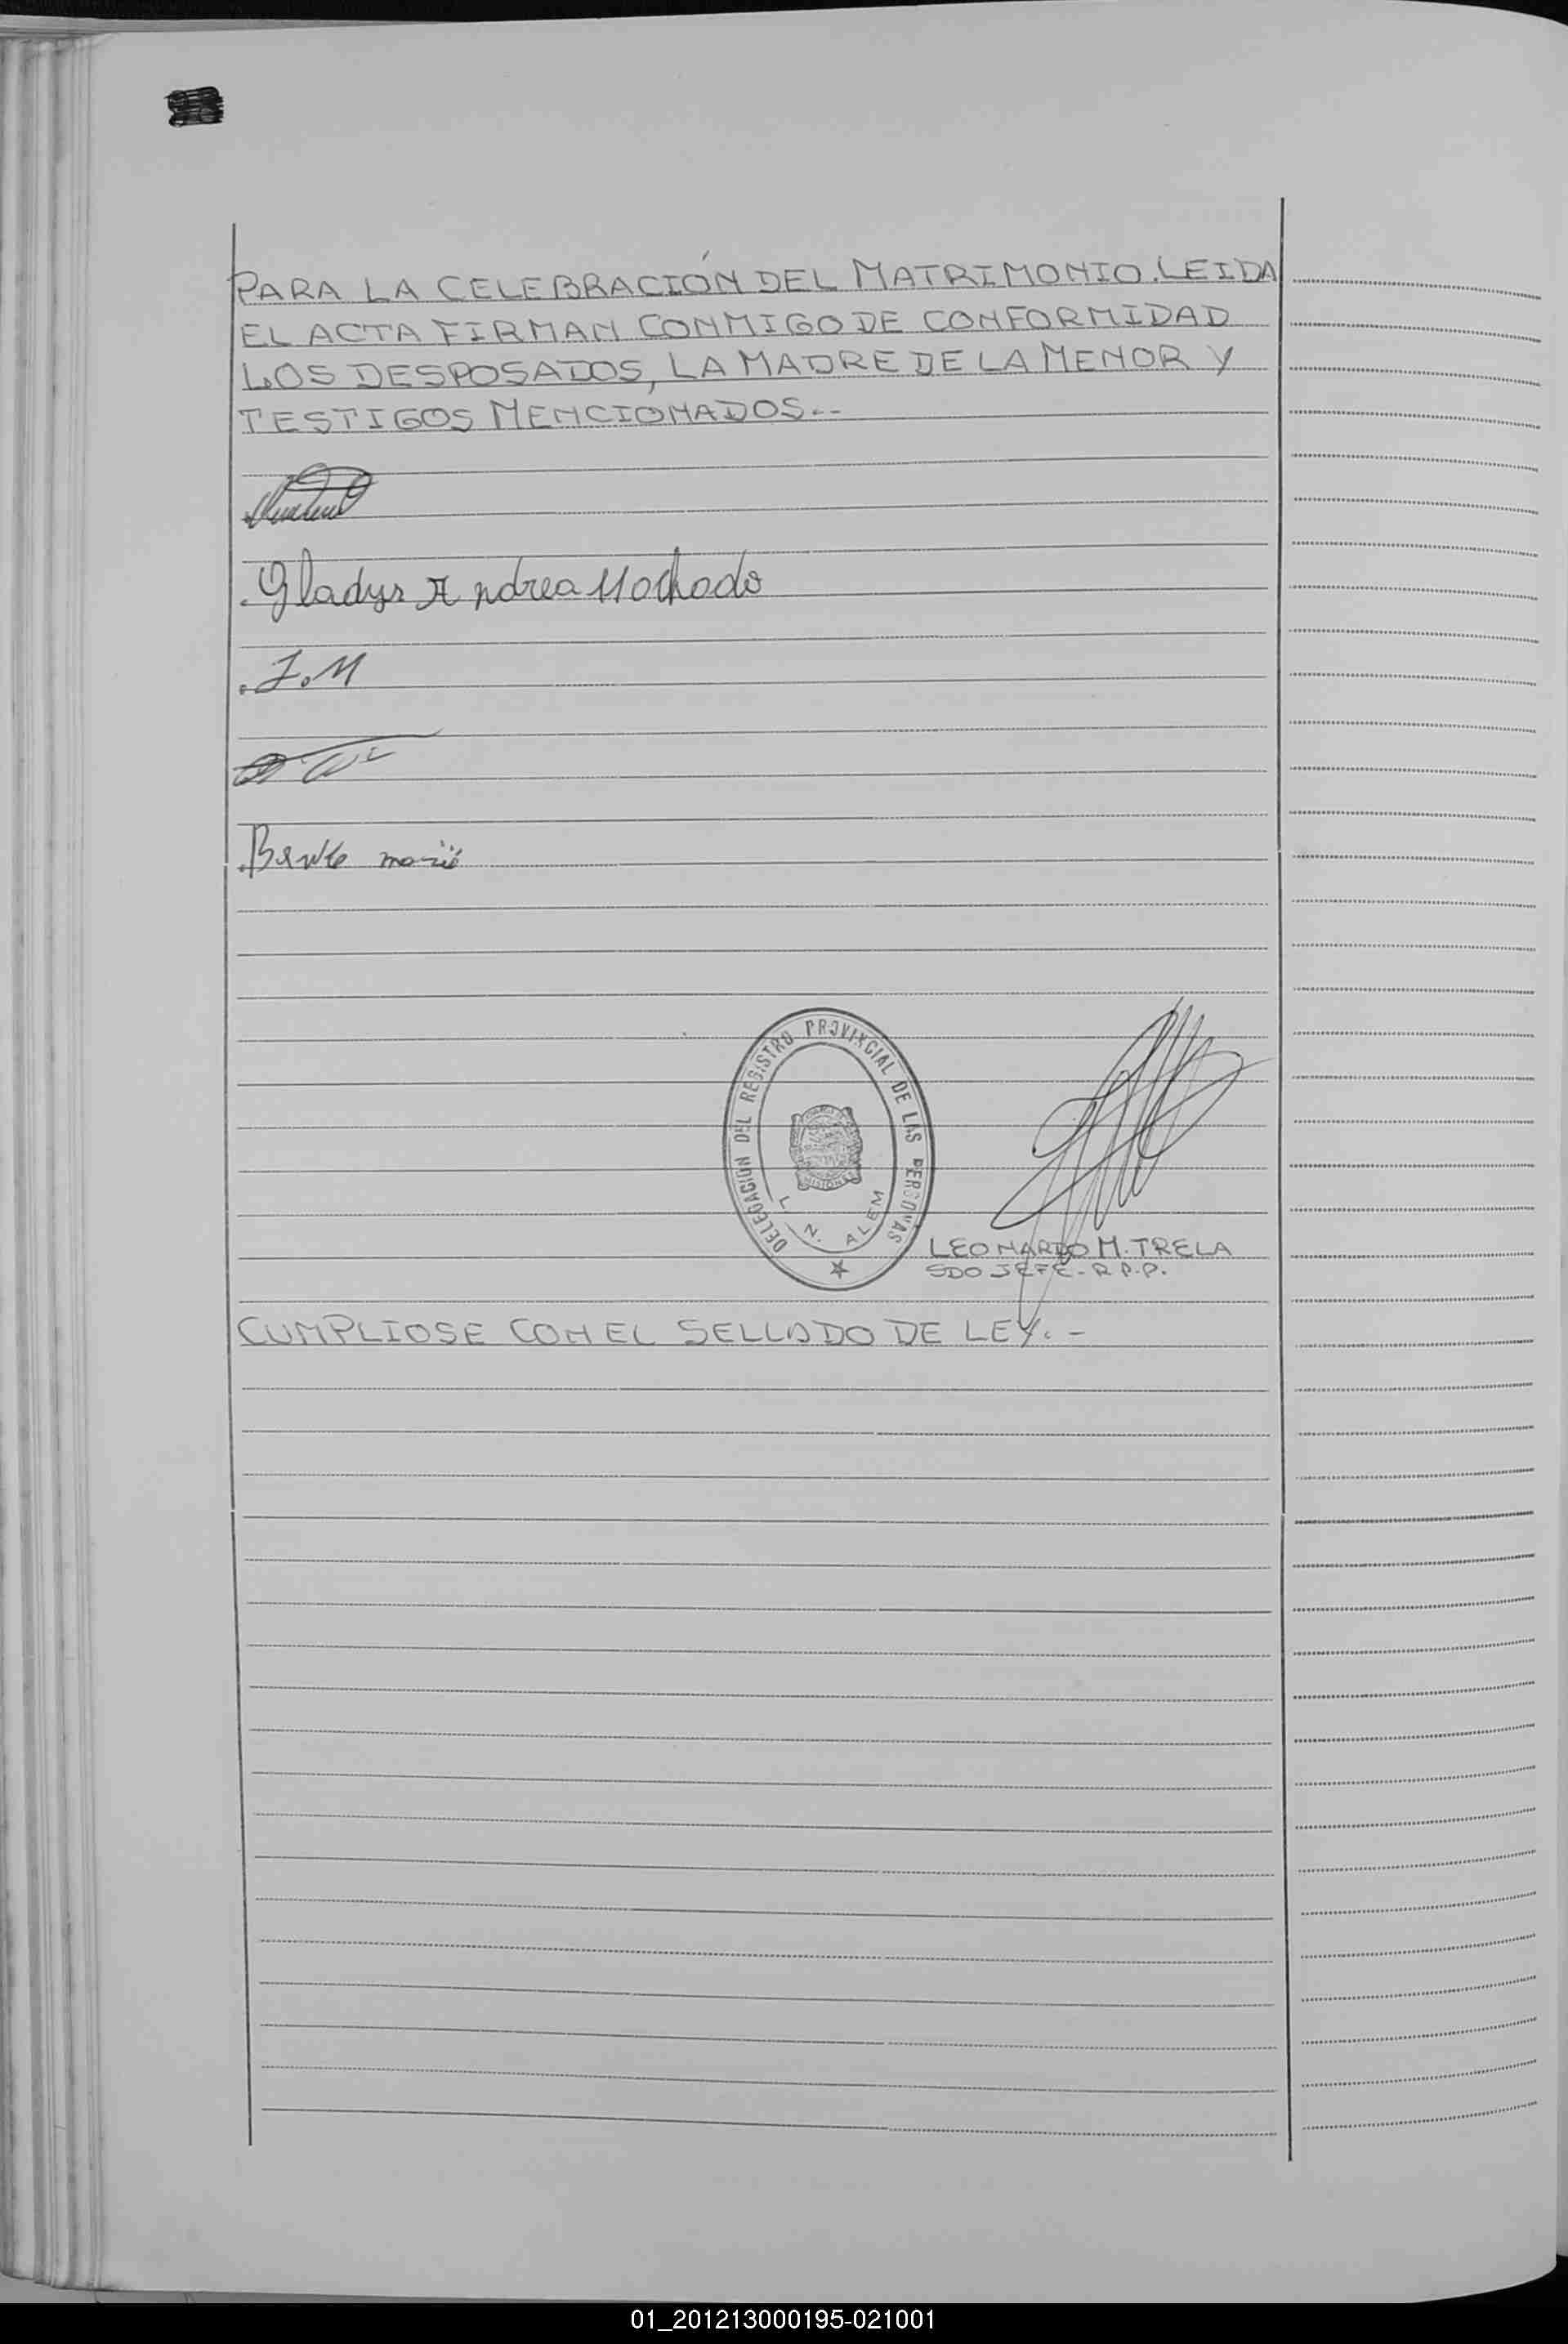 PARA LA CELEBRACIÓN DEL MATRIMONIO. LEIDA
EL ACTA FIRMAN CONMIGO DE CONFORMIDAD
LOS DESPOSADOS, LA MADRE DE LA MENOR Y
TESTIGOS MENCIONADOS.--
Gladys Andrea Machado
J.M
DELEGACION DEL REGISTRO PROVINCIAL DE LAS PERSONAS
MISIONES
L. N. ALEM
LEONARDO M. TRELA
SDO JEFE - R.P.P.
CUMPLIOSE CON EL SELLADO DE LEY.-
01_201213000195-021001